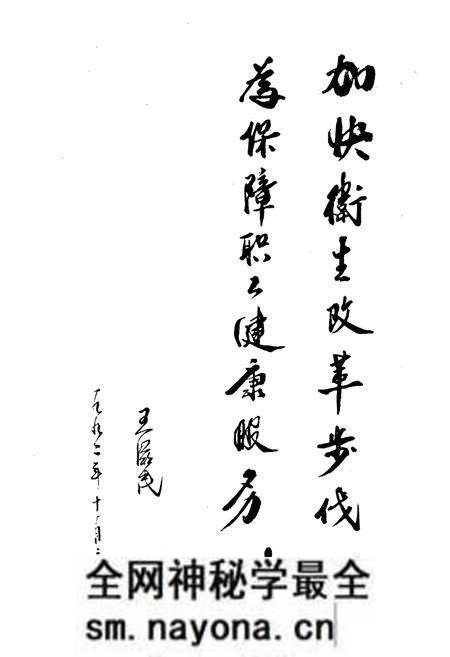 加快衛生改革步伐
為保障职工健康服务
王民
一九九二年十月
全网神秘学最全
sm.nayona.cn